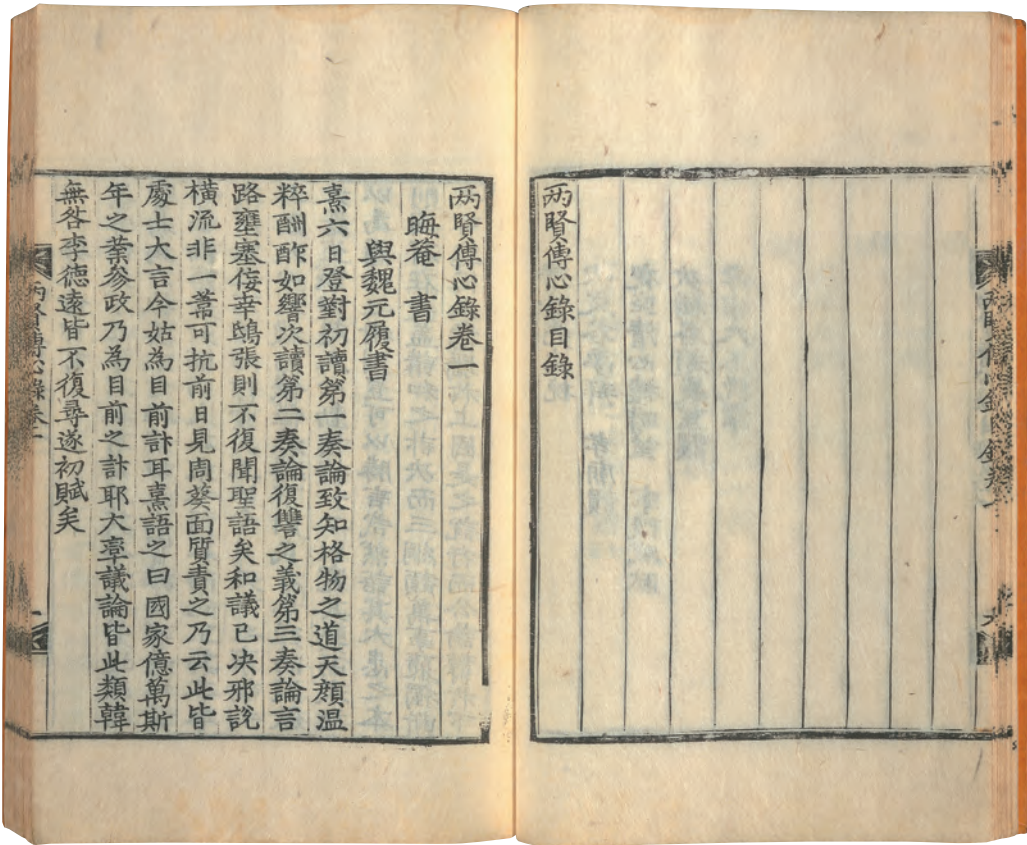 两賢傳心錄目錄
两賢傳心錄卷一
晦菴 書
與魏元履書
熹六日登對初讀第一奏論致知格物之道天顔温
粹酬酢如響次讀第二奏論復讐之義第三奏論言
路壅塞佞幸鴟張則不復聞聖語矣和議已决邪說
横流非一葦可抗前日見周葵面質責之乃云此皆
處士大言今姑為目前計耳熹語之曰國家億萬斯
年之業參政乃為目前之計耶大率議論皆此類韓
無咎李德遠皆不復尋遂初賦矣
两賢傳心錄卷一
一